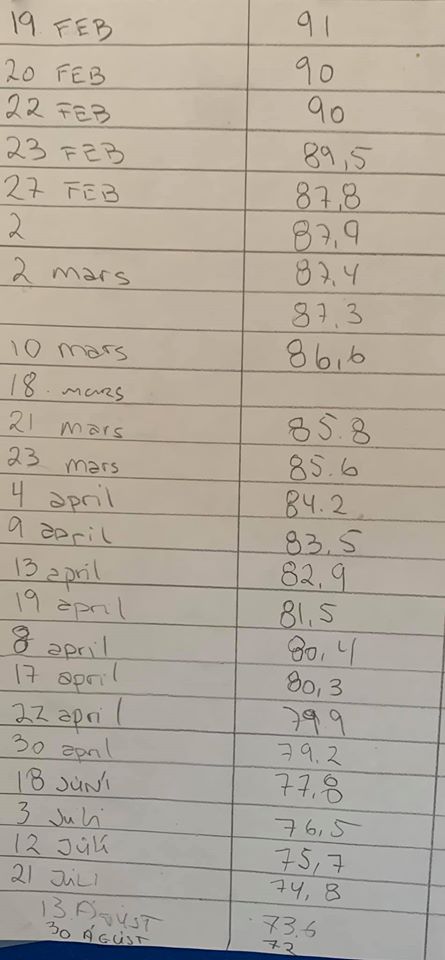 19 FEB 91
20 FEB 90
22 FEB 90
23 FEB 89,5
27 FEB 87,8
2 87,9
2 mars 87,4
87.3
10 mars 86,6
18. mars
21 mars 85.8
23 mars 85.6
4 april 84.2
9 april 83,5
13 april 82,9
19 april 81,5
8 april 80,4
17 april 80,3
22 april 79.9
30 april 79.2
18 JÚNÍ 77,8
3 Juli 76,5
12 JÚLÍ 75,7
21 JÚLI 74,8
13. ÁGÚST 73,6
30 ÁGÚST 72